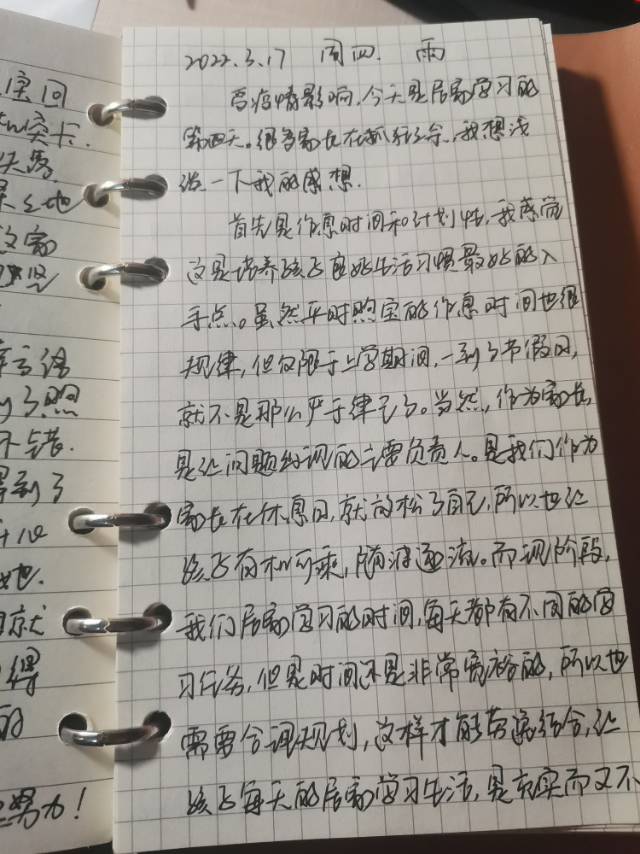 2022.3.17 周四. 雨
受疫情影响,今天是居家学习的
第四天。很多家长在抓狂之余,我想浅
谈一下我的感想.
首先是作息时间和计划性,我感觉
这是培养孩子良好生活习惯最好的入
手点。虽然平时熙宝的作息时间也很
规律,但仅限于上学期间,一到了节假日,
就不是那么严于律己了。当然,作为家长,
是这问题出现的主要负责人。是我们作为
家长在休息日,就放松了自己,所以也让
孩子有机可乘,随波逐流。而现阶段,
我们居家学习的时间,每天都有不同的学
习任务,但是时间还是非常宽裕的,所以也
需要合理规划,这样才能劳逸结合,让
孩子每天的居家学习生活,是充实而又不
宝回
实卡.
之地
文家
了熙
不错.
得到了
就
得
努力!